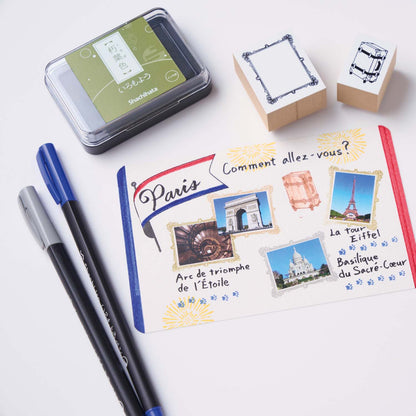 いろもよう
Shachihata
Comment allez-vous?
Paris
La tour
Eiffel
Arc de triomphe
de l'Étoile
Basilique
du Sacré-Cœur